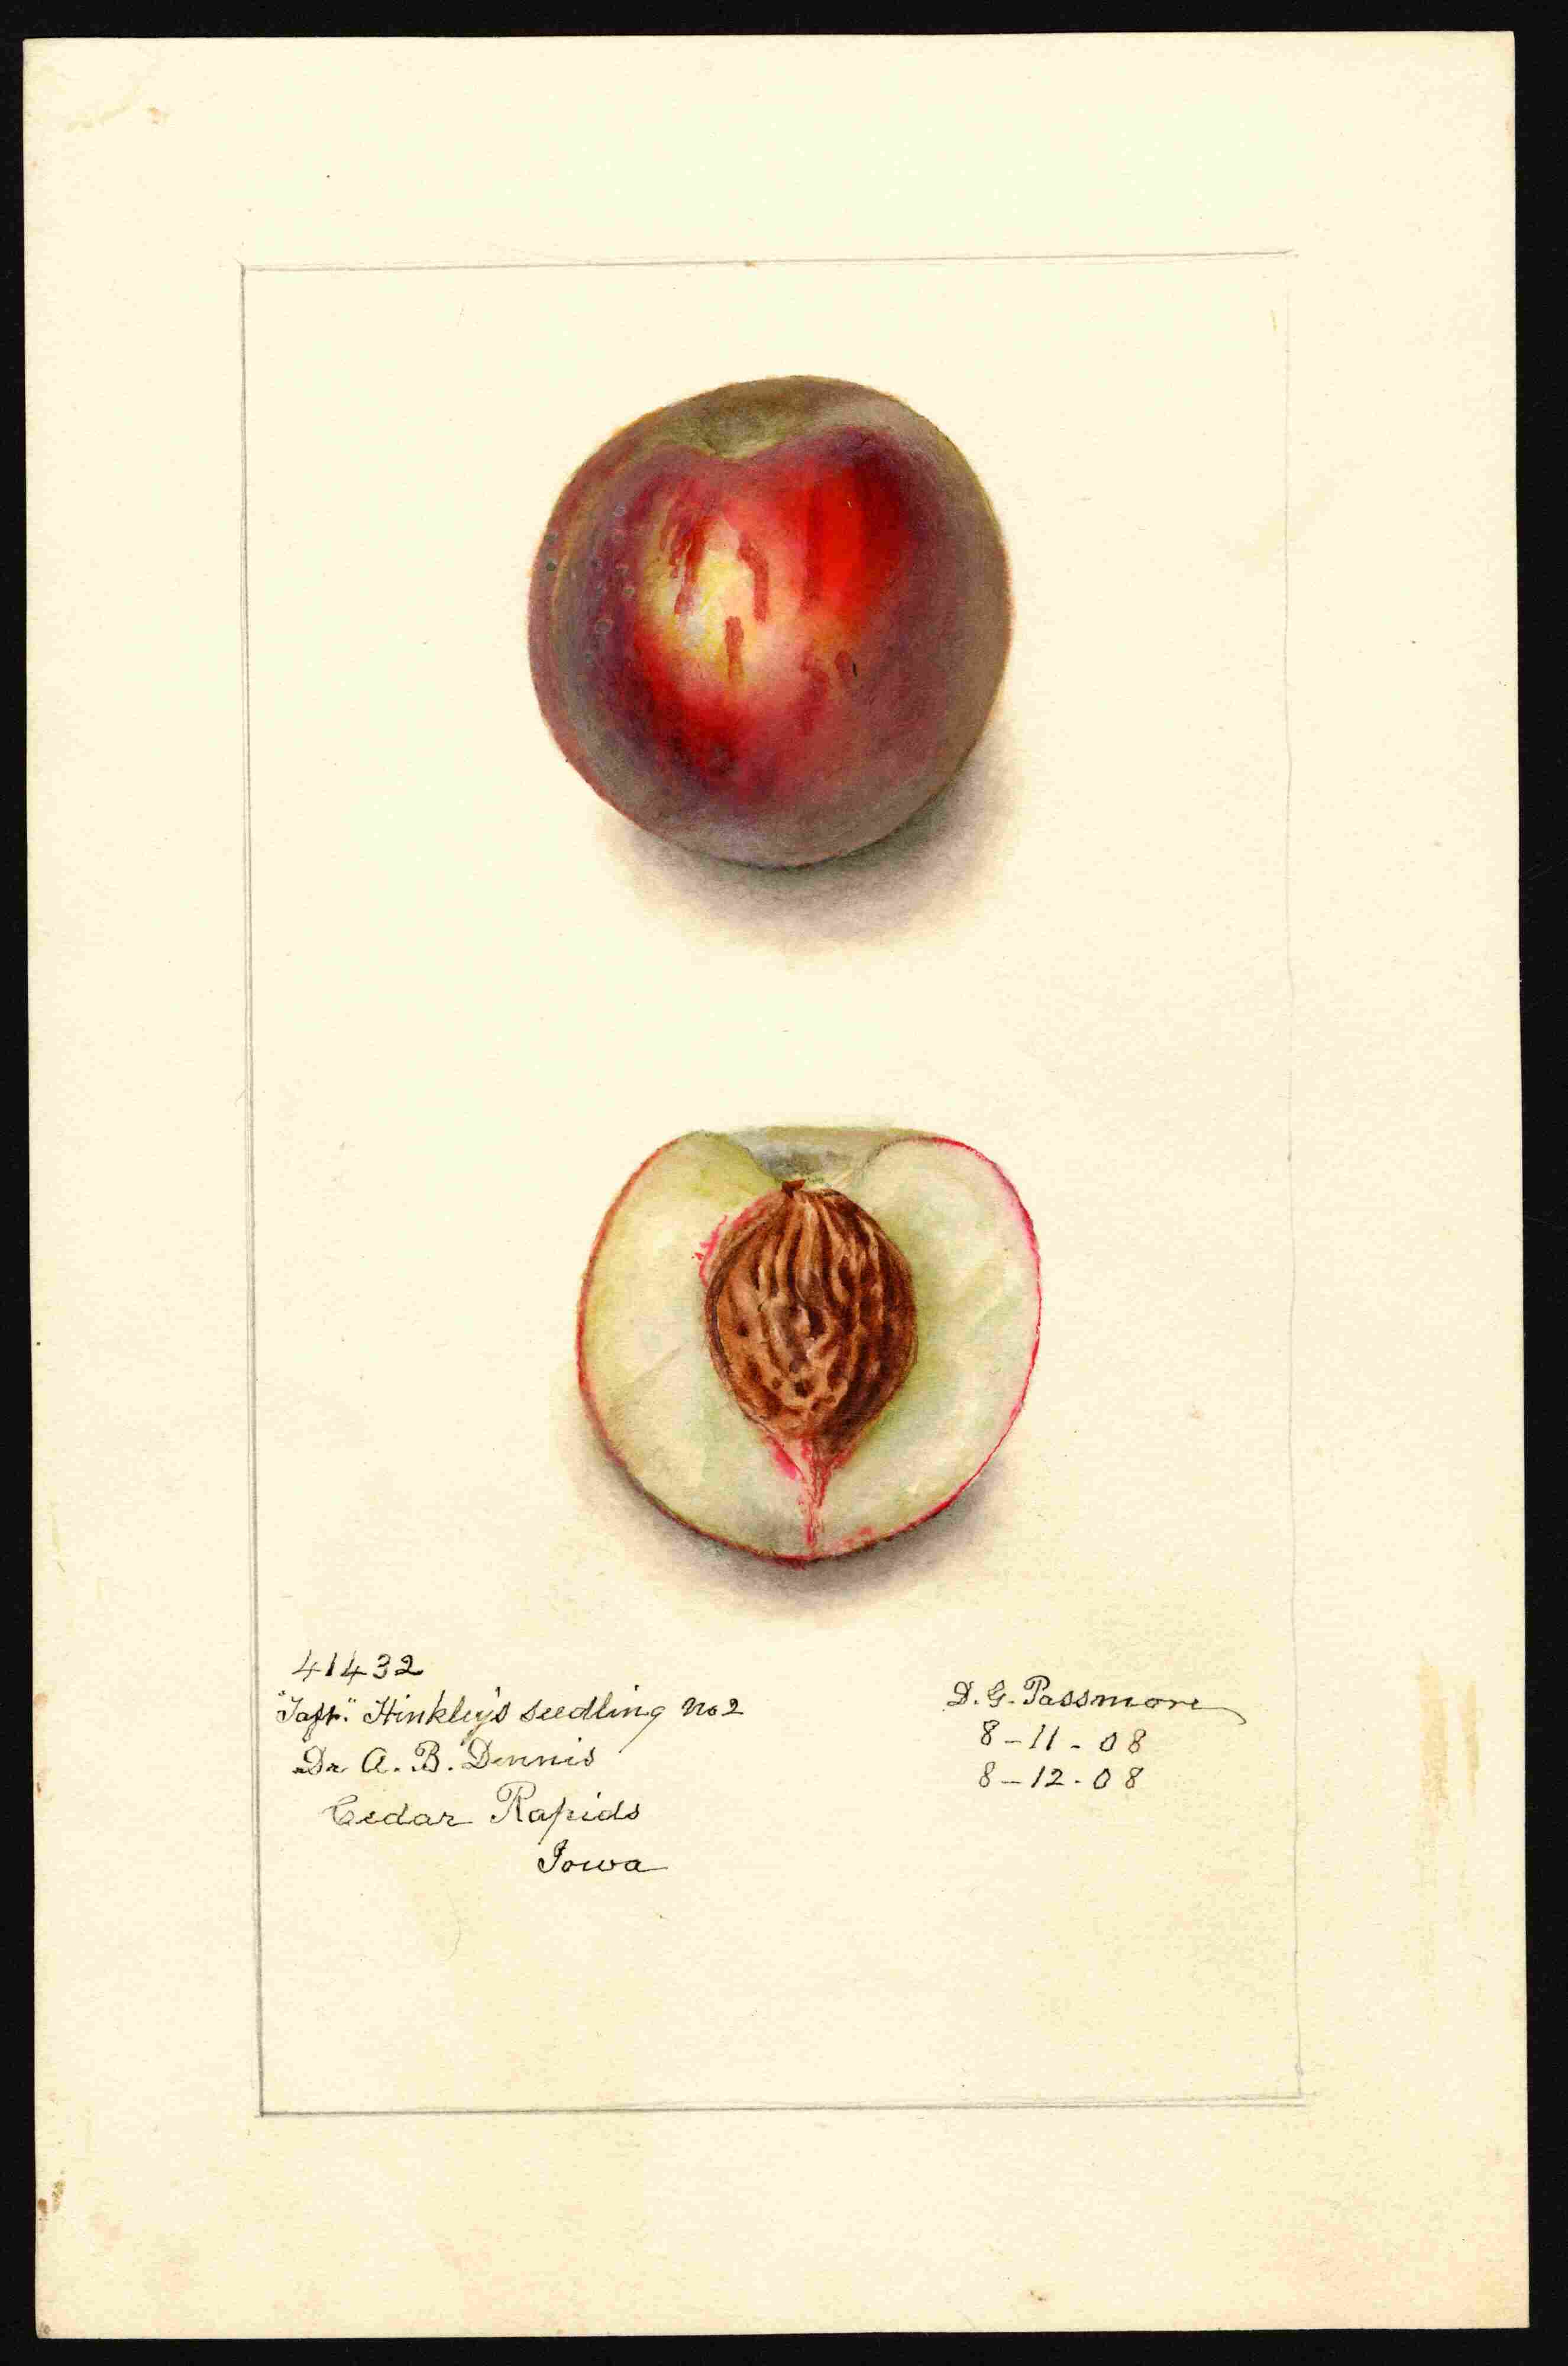 41432
"Taft." Hinkley's seedling no 2
Dr A. B. Dennis
Cedar Rapids
Iowa
D. G. Passmore
8-11-08
8-12-08